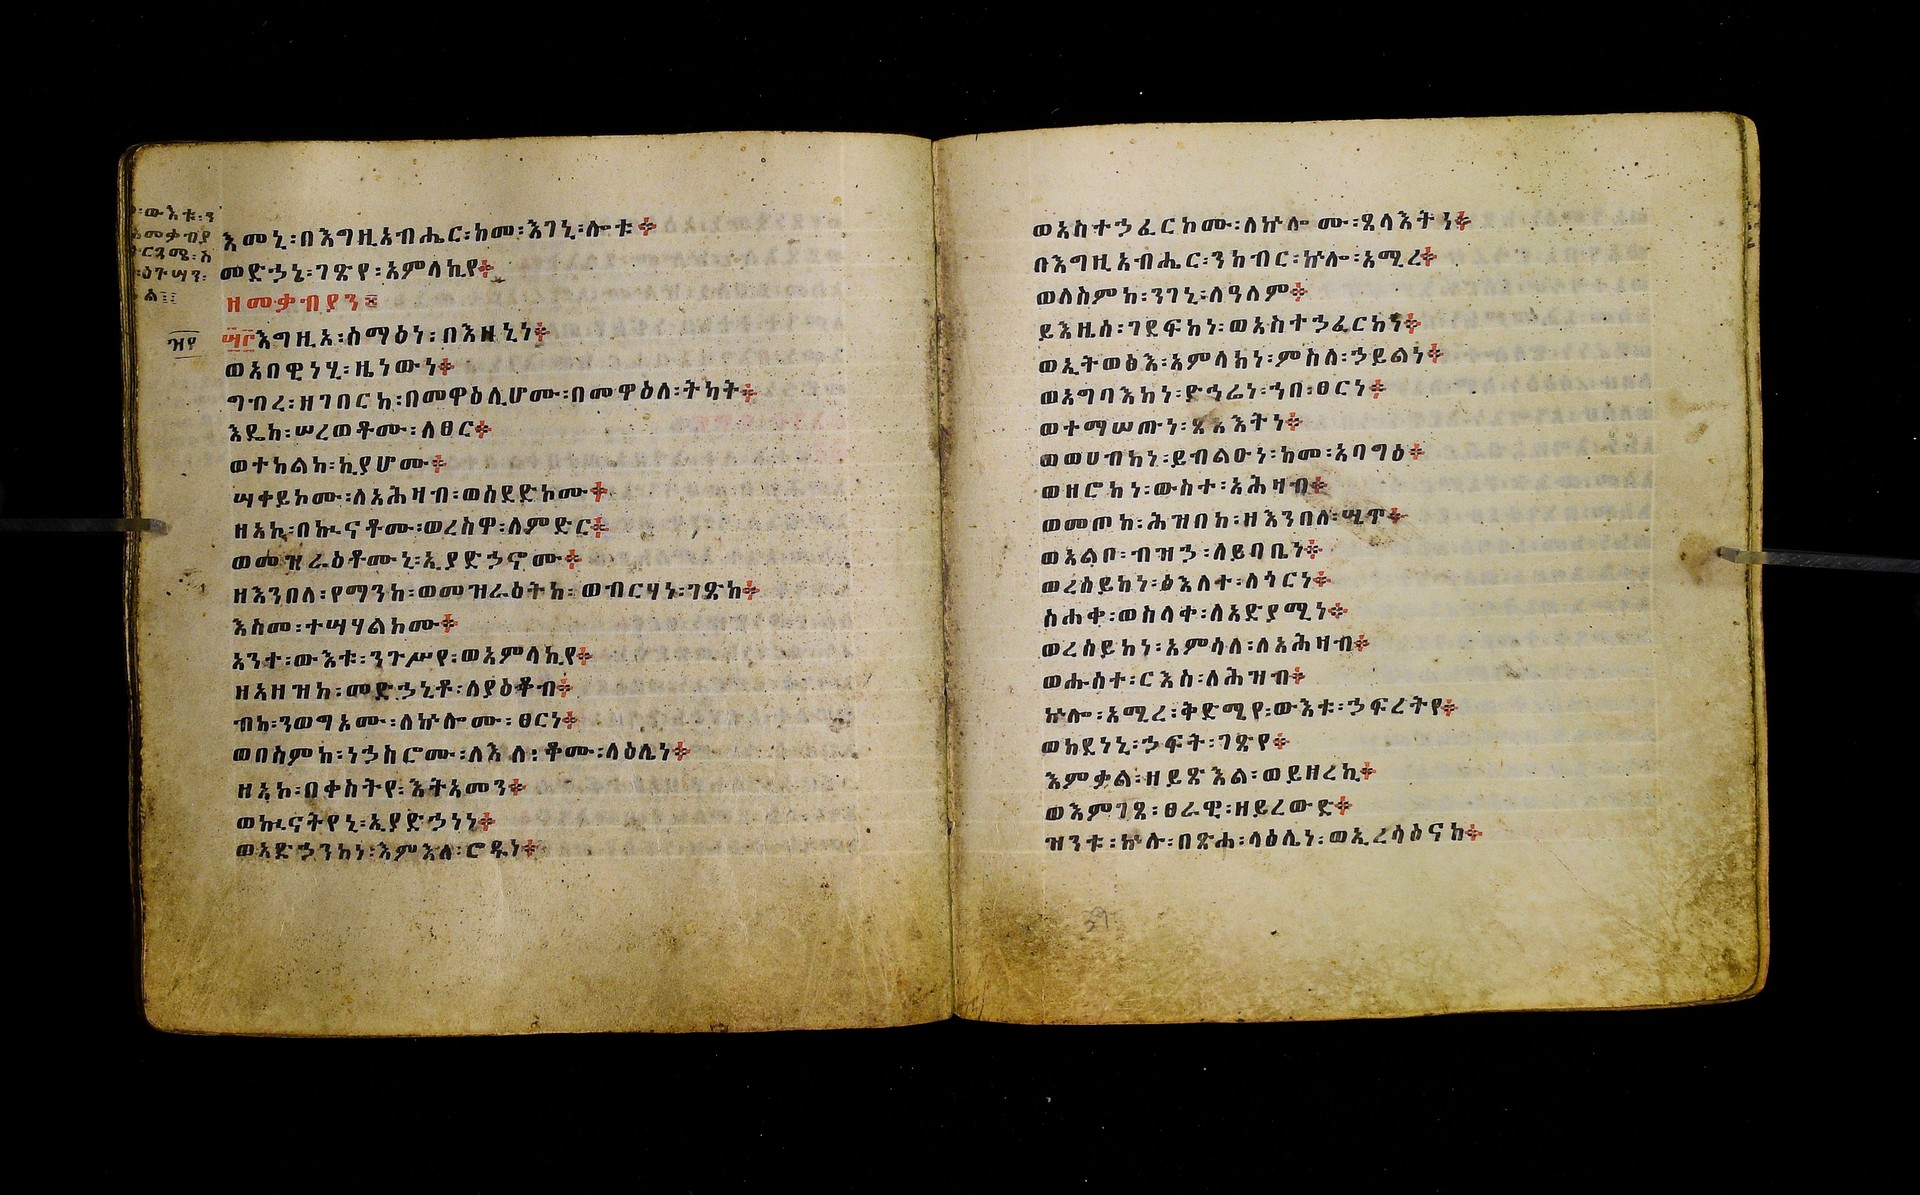 እመኒ፡በእግዚአብሔር፡ከመ፡እገኒ፡ሎቱ፨
መድኃኔ፡ገጽየ፡አምላኪየ፨
ዘመቃብያን፡፡
እግዚአ፡ሰማዕነ፡በእዘኒነ፨
ዝየ
ወአበዊነሂ፡ዜነውነ፨
ግብረ፡ዘገበርከ፡በመዋዕሊሆሙ፡በመዋዕለ፡ትካት፨
እዴከ፡ሠረወቶሙ፡ለፀር፨
ወተከልከ፡ኪያሆሙ፨
ሣቀይኮሙ፡ለአሕዛብ፡ወሰደድኮሙ፨
ዘአኮ፡በኲናቶሙ፡ወረስዋ፡ለምድር፨
ወመዝራዕቶሙኒ፡ኢያድኃኖሙ፨
ዘእንበለ፡የማንከ፡ወመዝራዕትከ፡ወብርሃነ፡ገጽከ፨
እስመ፡ተሣሃልከሙ፨
አንተ፡ውእቱ፡ንጉሥየ፡ወአምላኪየ፨
ዘአዘዝከ፡መድኃኒቶ፡ለያዕቆብ፨
ብከ፡ንወግኦሙ፡ለኵሎሙ፡ፀርነ፨
ወበስምከ፡ነኃስሮሙ፡ለእለ፡ቆሙ፡ላዕሌነ፨
ዘአኮ፡በቀስትየ፡እትአመን፨
ወኲናትየኒ፡ኢያድኃነኒ፨
ወአድኃንከነ፡እምእለ፡ሮዱነ፨
ወአስተኃፈርኮሙ፡ለኵሎሙ፡ጸላእትነ፨
በእግዚአብሔር፡ንከብር፡ኵሎ፡አሚረ፨
ወለስምከ፡ንገኒ፡ለዓለም፨
ይእዜሰ፡ገደፍከነ፡ወአስተኃፈርከነ፨
ወኢትወፅእ፡አምላከነ፡ምስለ፡ኃይልነ፨
ወአግባእከነ፡ድኅሬነ፡ኀበ፡ፀርነ፨
ወተማሠጡነ፡ጸላእትነ፨
ወወሀብከነ፡ይብልዑነ፡ከመ፡አባግዕ፨
ወዘሮከነ፡ውስተ፡አሕዛብ፨
ወመጦከ፡ሕዝበከ፡ዘእንበለ፡ሤጥ፨
ወአልቦ፡ብዝኃ፡ለይባቤነ፨
ወረሰይከነ፡ፅእለተ፡ለጎርነ፨
ስሐቀ፡ወስላቀ፡ለአድያሚነ፨
ወረሰይከነ፡አምሳለ፡ለአሕዛብ፨
ወሑሰተ፡ርእስ፡ለሕዝብ፨
ኵሎ፡አሚረ፡ቅድሜየ፡ውእቱ፡ኃፍረትየ፨
ወከደነኒ፡ኃፍት፡ገጽየ፨
እምቃል፡ዘይጽእል፡ወይዘረኪ፨
ወእምገጸ፡ፀራዊ፡ዘይረውድ፨
ዝንቱ፡ኵሉ፡በጽሐ፡ላዕሌነ፡ወኢረሳዕናከ፨